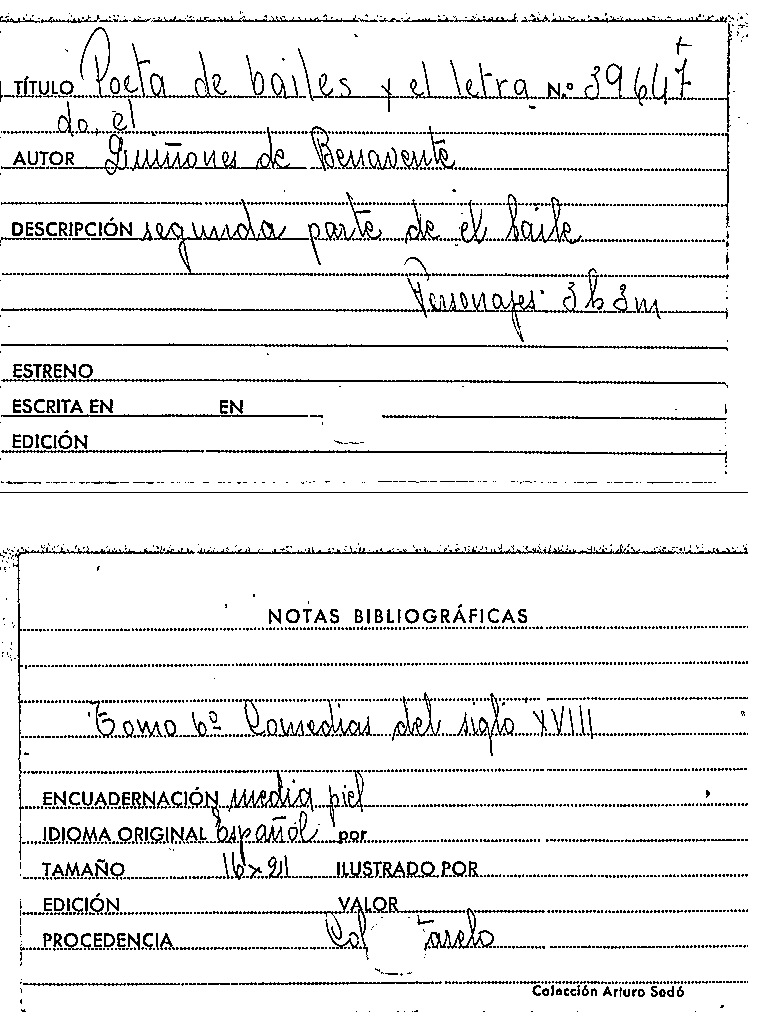 TÍTULO Poeta de bailes y el letra N.º 39647
do, el
AUTOR Quiñones de Benavente
DESCRIPCIÓN segunda parte de el baile
Personajes: 3 h 3 m
ESTRENO
ESCRITA EN EN
EDICIÓN
NOTAS BIBLIOGRÁFICAS
Tomo 6º Comedias del siglo XVIII
ENCUADERNACIÓN media piel
IDIOMA ORIGINAL Español por
TAMAÑO 16 x 21 ILUSTRADO POR
EDICIÓN VALOR
PROCEDENCIA Co tarelo
Colección Arturo Sedó